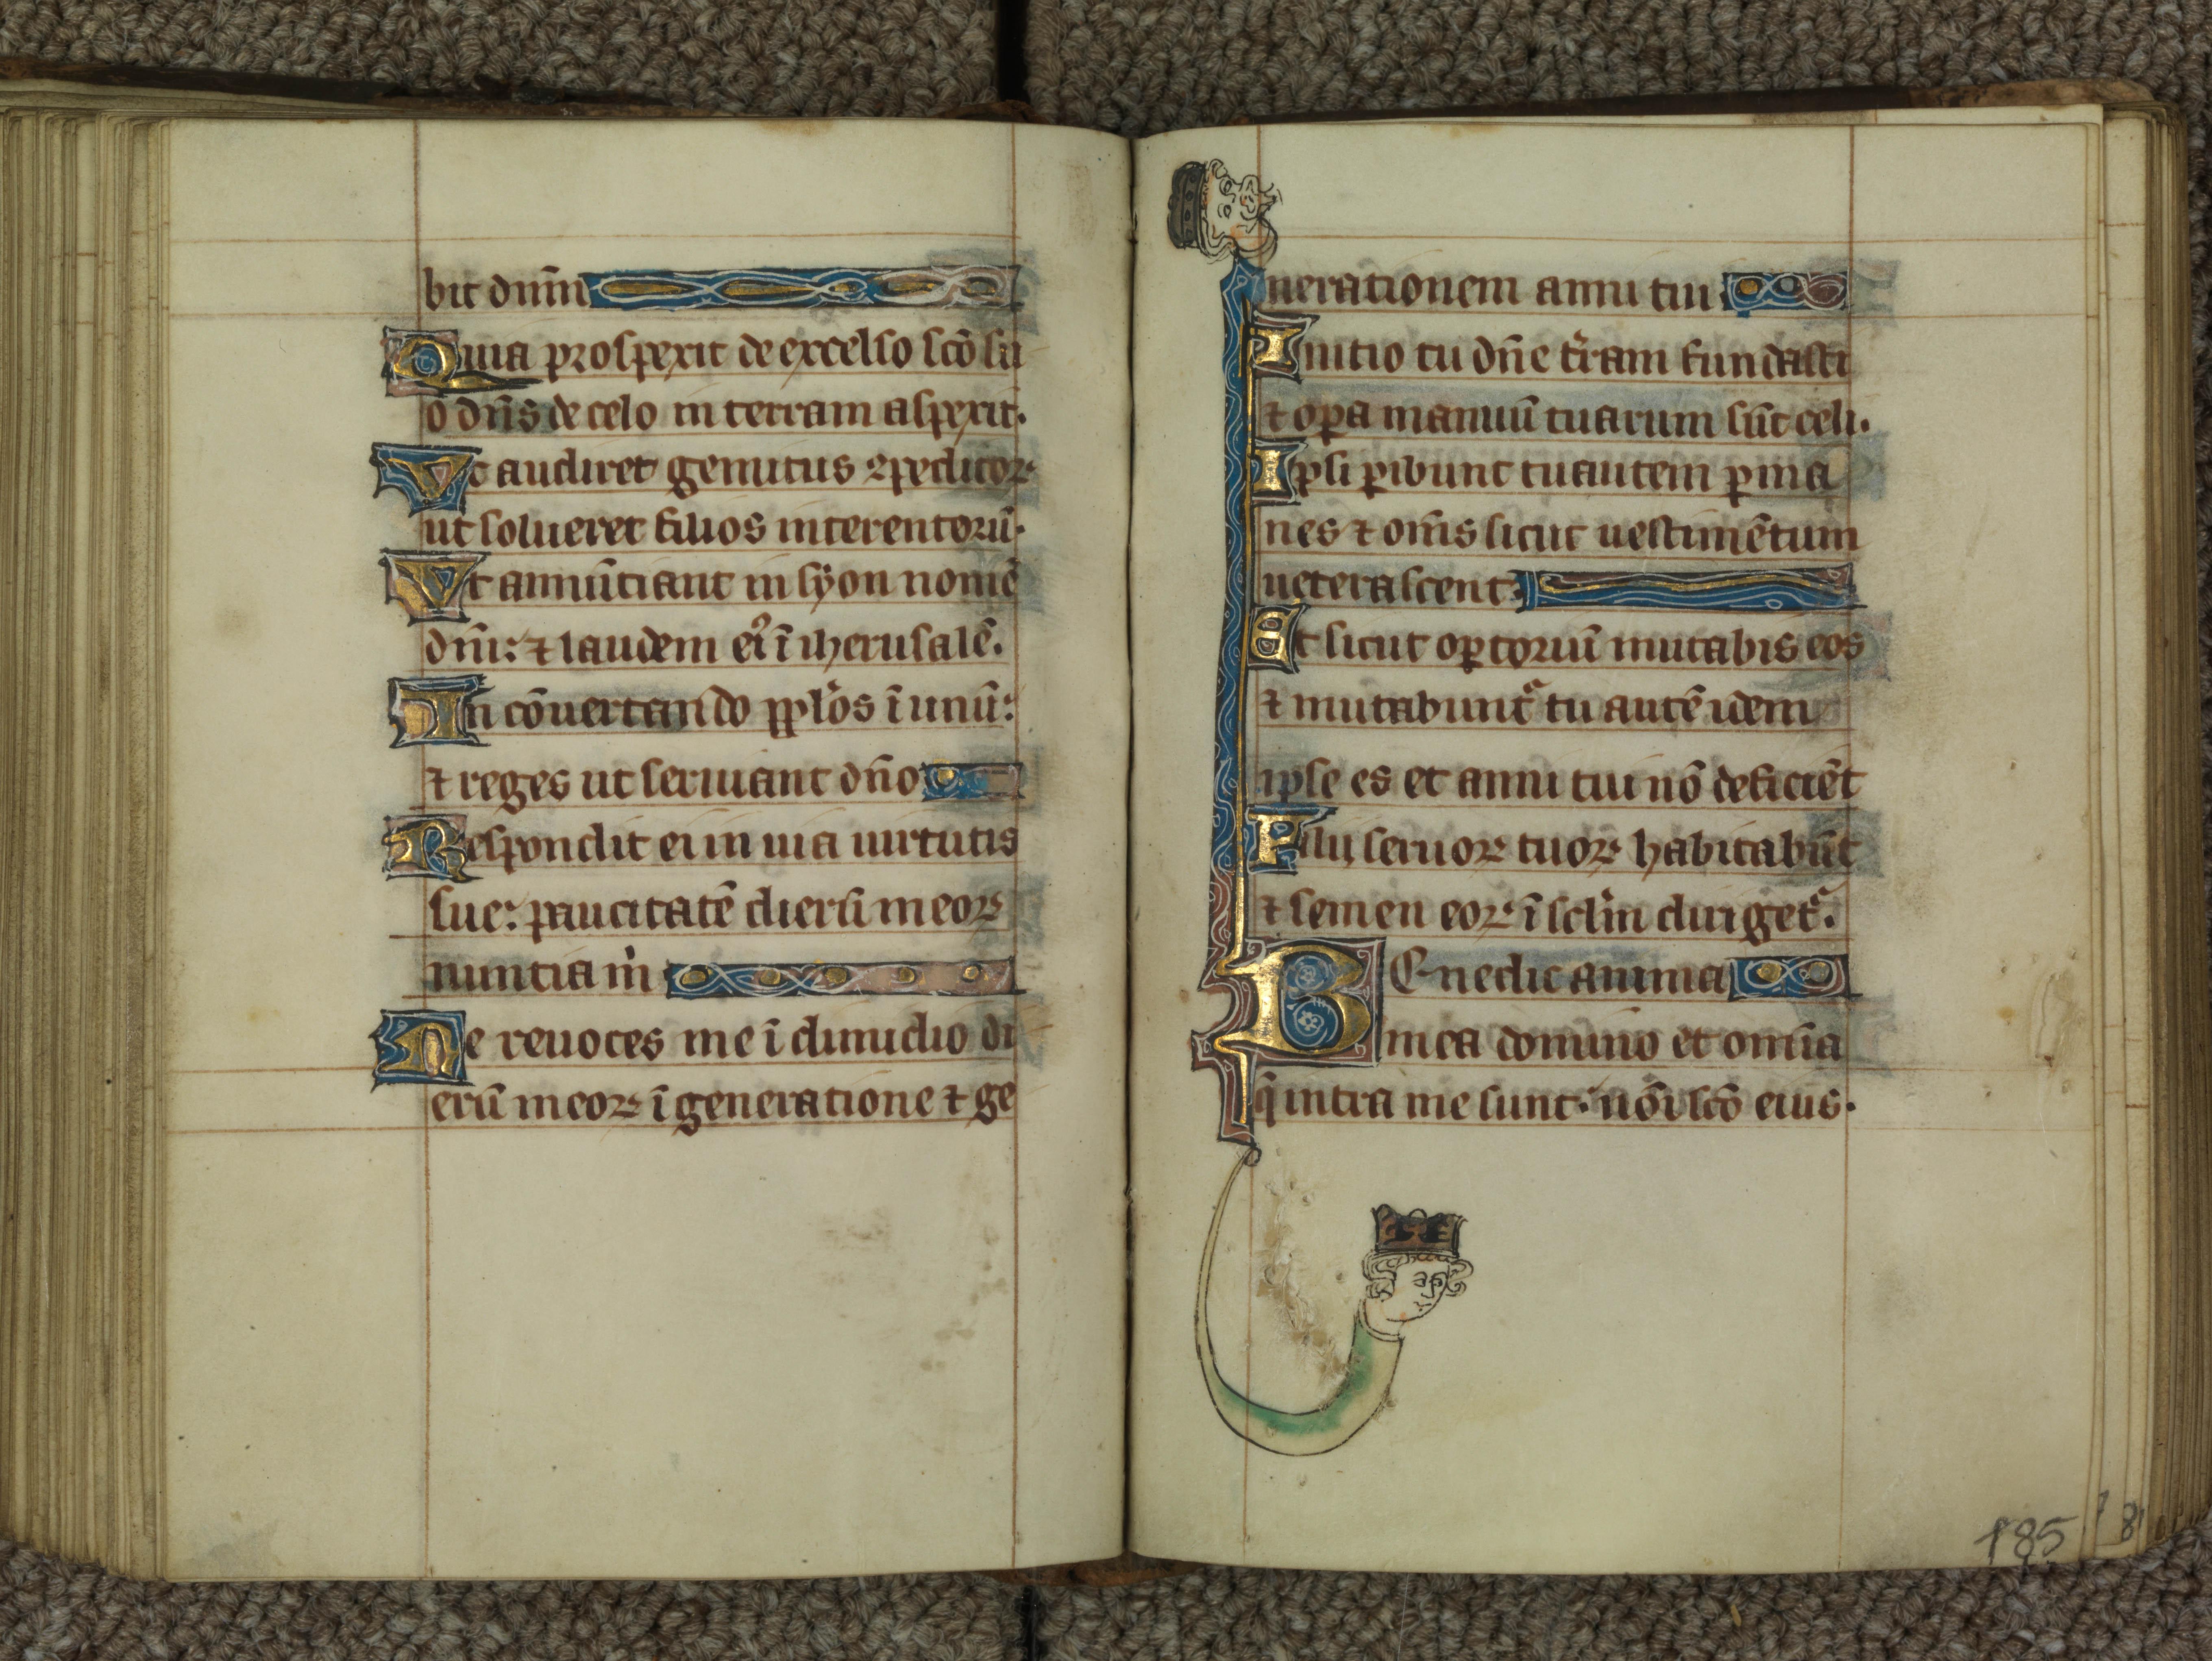 bit dnm̄
Quia prospexit de excelso scō su
o dn̄s de celo in terram aspexit.
Vt audiret gemitus ꝯpeditoꝝ
ut solueret filios interentorū.
Vt annūtiant in syon nomē
dn̄i: ⁊ laudem eiꝰ ī iherusalē.
In cōuertendo pplōs ī unū:
⁊ reges ut seruiant dn̄o
Respondit ei in uia uirtutis
sue: paucitatē dierū meoꝝ
nuntia m̄
Ne reuoces me ī dimidio di
erū meoꝝ ī generatione ⁊ ge
nerationem anni tui
Initio tu dn̄e t̄ram fundasti
⁊ oꝑa manuū tuarum sūt celi.
Ipsi ꝑibunt tu autem ꝑma
nes ⁊ om̄s sicut uestimētum
ueterascent.
Et sicut oꝑtoriū mutabis eos
⁊ mutabunt᷑ tu autē idem
ipse es et anni tui nō deficiēt
Filij seruoꝝ tuoꝝ habitabūt
⁊ semen eoꝝ ī sclm̄ diriget᷑.
BEnedic anima
mea domino et om̄ia
q̄ intra me sunt. nōi scō eius.
185